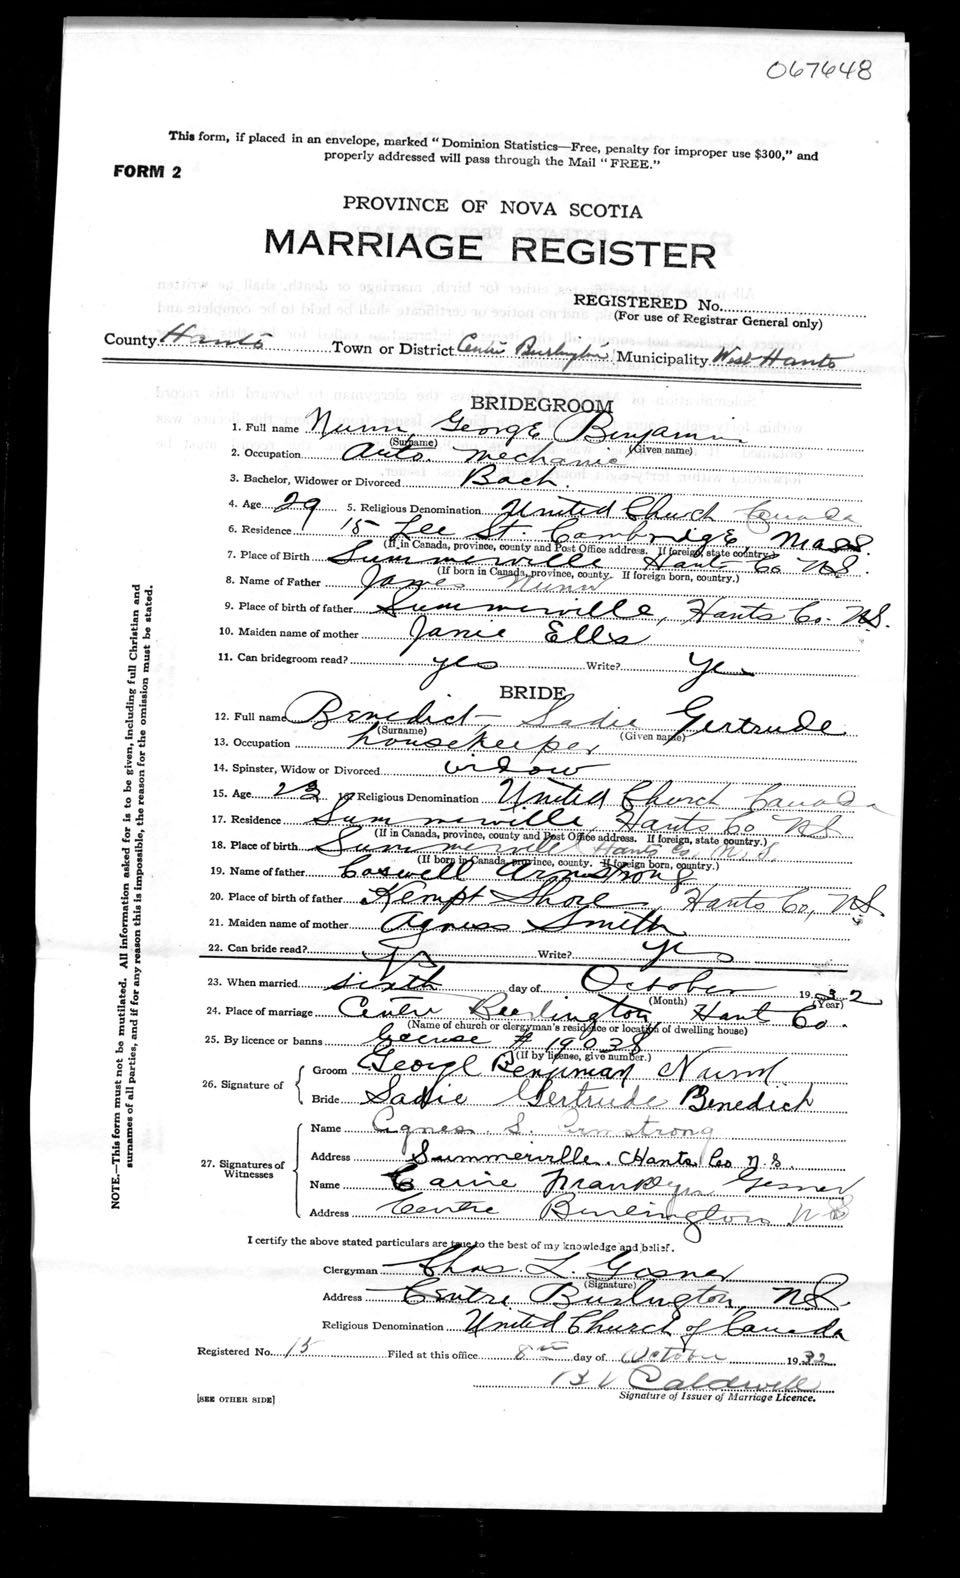 067648
This form, if placed in an envelope, marked "Dominion Statistics—Free, penalty for improper use $300," and
properly addressed will pass through the Mail "FREE."
FORM 2
PROVINCE OF NOVA SCOTIA
MARRIAGE REGISTER
REGISTERED No.
(For use of Registrar General only)
County Hants Town or District Centre Burlington Municipality West Hants
BRIDEGROOM
1. Full name Nunn, George Benjamin
(Surname) (Given name)
2. Occupation Auto. Mechanic
3. Bachelor, Widower or Divorced Bach.
4. Age 29 5. Religious Denomination United Church Canada
6. Residence 15 Lee St. Cambridge, Mass.
(If in Canada, province, county and Post Office address. If foreign, state country.)
7. Place of Birth Summerville Hants Co N.S.
(If born in Canada, province, county. If foreign born, country.)
8. Name of Father James Nunn
9. Place of birth of father Summerville, Hants Co. N.S.
10. Maiden name of mother Janie Ells
11. Can bridegroom read? yes Write? Yes
BRIDE
12. Full name Benedict - Sadie Gertrude
(Surname) (Given name)
13. Occupation housekeeper
14. Spinster, Widow or Divorced widow
15. Age 23 16. Religious Denomination United Church Canada
17. Residence Summerville, Hants Co NS
(If in Canada, province, county and Post Office address. If foreign, state country.)
18. Place of birth Summerville Hants Co N.S.
(If born in Canada, province, county. If foreign born, country.)
19. Name of father Armstrong
20. Place of birth of father Kempt Shore, Hants Co, N.S.
21. Maiden name of mother Agness Smith
22. Can bride read? yes Write? yes
23. When married sixth day of October 1932
(Month) (Year)
24. Place of marriage Centre Burlington, Hant Co.
(Name of church or clergyman's residence or location of dwelling house)
25. By licence or banns license # 19038
(If by license, give number.)
26. Signature of
Groom George Benjiman Nunn
Bride Sadie Gertrude Benedict
27. Signatures of Witnesses
Name Agness S. Armstrong
Address Summerville. Hants Co N.S.
Name Gesner
Address Centre Burlington N.S
I certify the above stated particulars are true to the best of my knowledge and belief.
Clergyman Chas. L. Gesner
(Signature)
Address Centre Burlington N.S.
Religious Denomination United Church of Canada
Registered No. 15 Filed at this office 8th day of October 1932
B V Caldwell
Signature of Issuer of Marriage Licence.
[SEE OTHER SIDE]
NOTE.—This form must not be mutilated. All information asked for is to be given, including full Christian and
surnames of all parties, and if for any reason this is impossible, the reason for the omission must be stated.